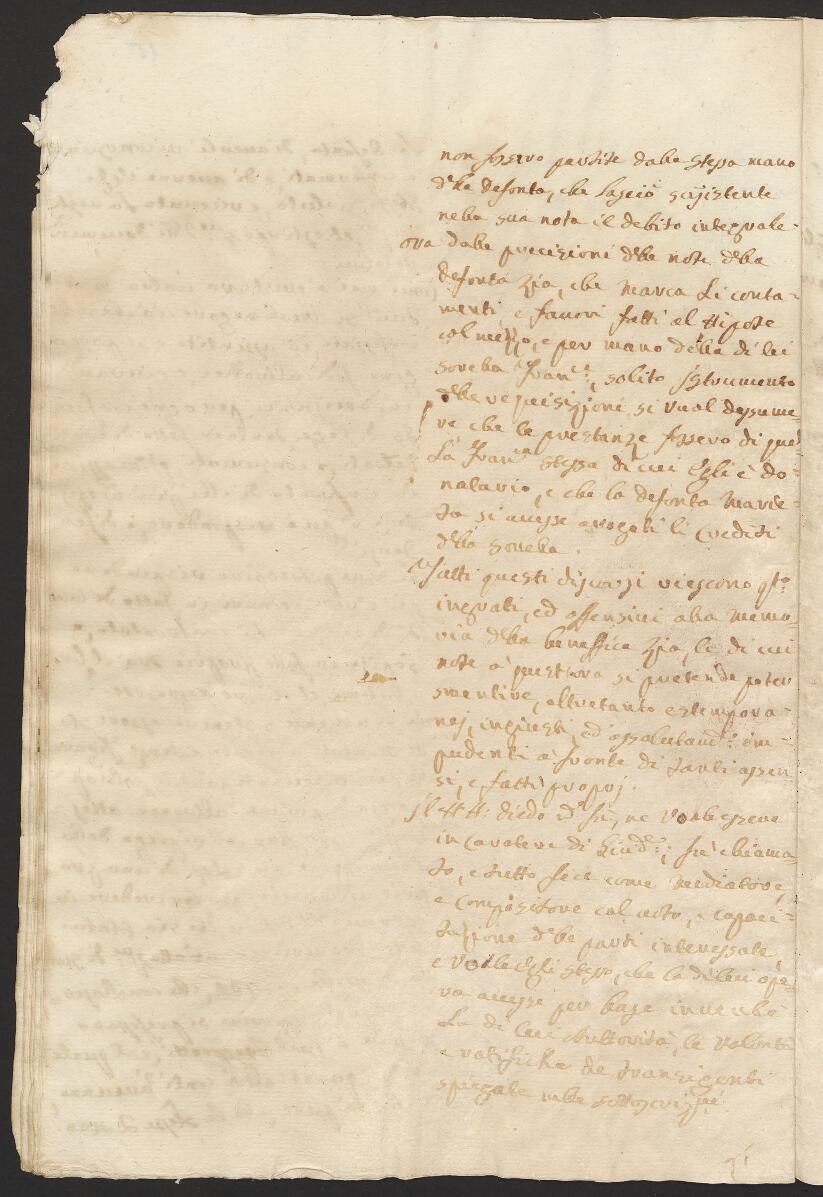 non fossero partite dalla stessa mano
della defonta, che lasciò sussistente
nella sua nota il debito integrale
ora dalle precisioni delle note della
defonta Zia, che marca li conta-
menti, e favori fatti al Nipote
col mezzo, e per mano della di lei
sorella Fran.ca, solito Istrumento
delle requisizioni, si vual dessume-
re che le prestanze fossero di
la Fran.ca stessa di cui Egli è do-
natario, e che la defonta Marie-
ta si avesse arogati li Crediti
della sorella.
Tutti questi discorsi riescono
ingrati, ed offensivi alla memo-
ria della beneffica Zia, le di cui
note a quest'ora si pretende poter
smentire, altretanto estempora-
nej, ingiusti, ed assolutam.te im-
pudenti a fronte di tanti assen-
si, e fatti proprj.
Il N.H. Diedo non fù, ne volle essere
in Caratere di Giud.e; fù chiama-
to, e tutto fece come Mediatore,
e Compositore col voto, e capaci-
tazione delle parti interessate,
e volle Egli stesso, che la di lui ope-
ra avesse per base in
La di lui Auttorità, le volontà
e ratifiche de Transigenti
spiegate nelle sottoscrizioni